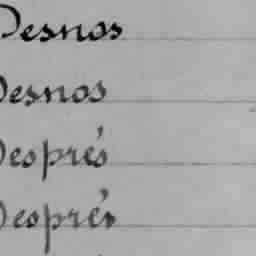 Desnos
Desnos
Després
Després